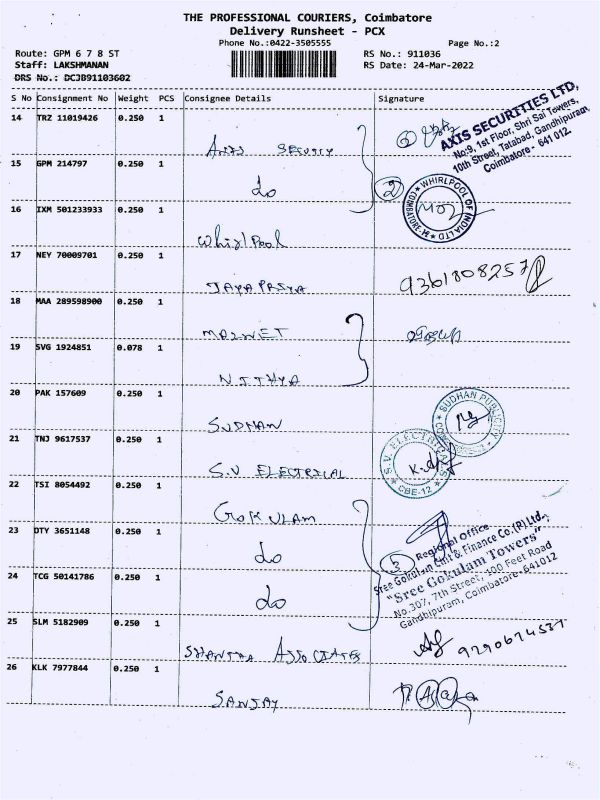 THE PROFESSIONAL COURIERS, Coimbatore
Delivery Runsheet - PCX
Phone No.:0422-3505555
Page No.:2
Route: GPM 6 7 8 ST
RS No.: 911036
Staff: LAKSHMANAN
RS Date: 24-Mar-2022
DRS No.: DCJB91103602
S No Consignment No Weight PCS Consignee Details Signature
14 TRZ 11019426 0.250 1 AXIS SECURITY
AXIS SECURITIES LTD,
No:9, 1st Floor, Shri Sai Towers,
10th Street, Tatabad, Gandhipuram,
Coimbatore - 641 012.
15 GPM 214797 0.250 1 do
2
16 IXM 501233933 0.250 1 Whirlpool
WHIRLPOOL OF INDIA LTD
COIMBATORE-
17 NEY 70009701 0.250 1 JAYAPRIYA
9361808257
18 MAA 289598900 0.250 1
19 SVG 1924851 0.078 1 NITHYA
20 PAK 157609 0.250 1 SUDHAN
SUDHAN PUBLICITY
21 TNJ 9617537 0.250 1 S.V ELECTRICAL
S.V. ELECTRICALS
CBE-12
22 TSI 8054492 0.250 1 GOKULAM
23 DTY 3651148 0.250 1 do
3
Regional Office
Sree Gokulam Chit & Finance Co.(P)Ltd.,
"Sree Gokulam Towers"
No.307, 7th Street, 100 Feet Road
Gandhipuram, Coimbatore-641012
24 TCG 50141786 0.250 1 do
25 SLM 5182909 0.250 1 SHANTHA ASSOCIATES
26 KLK 7977844 0.250 1 SANJAY